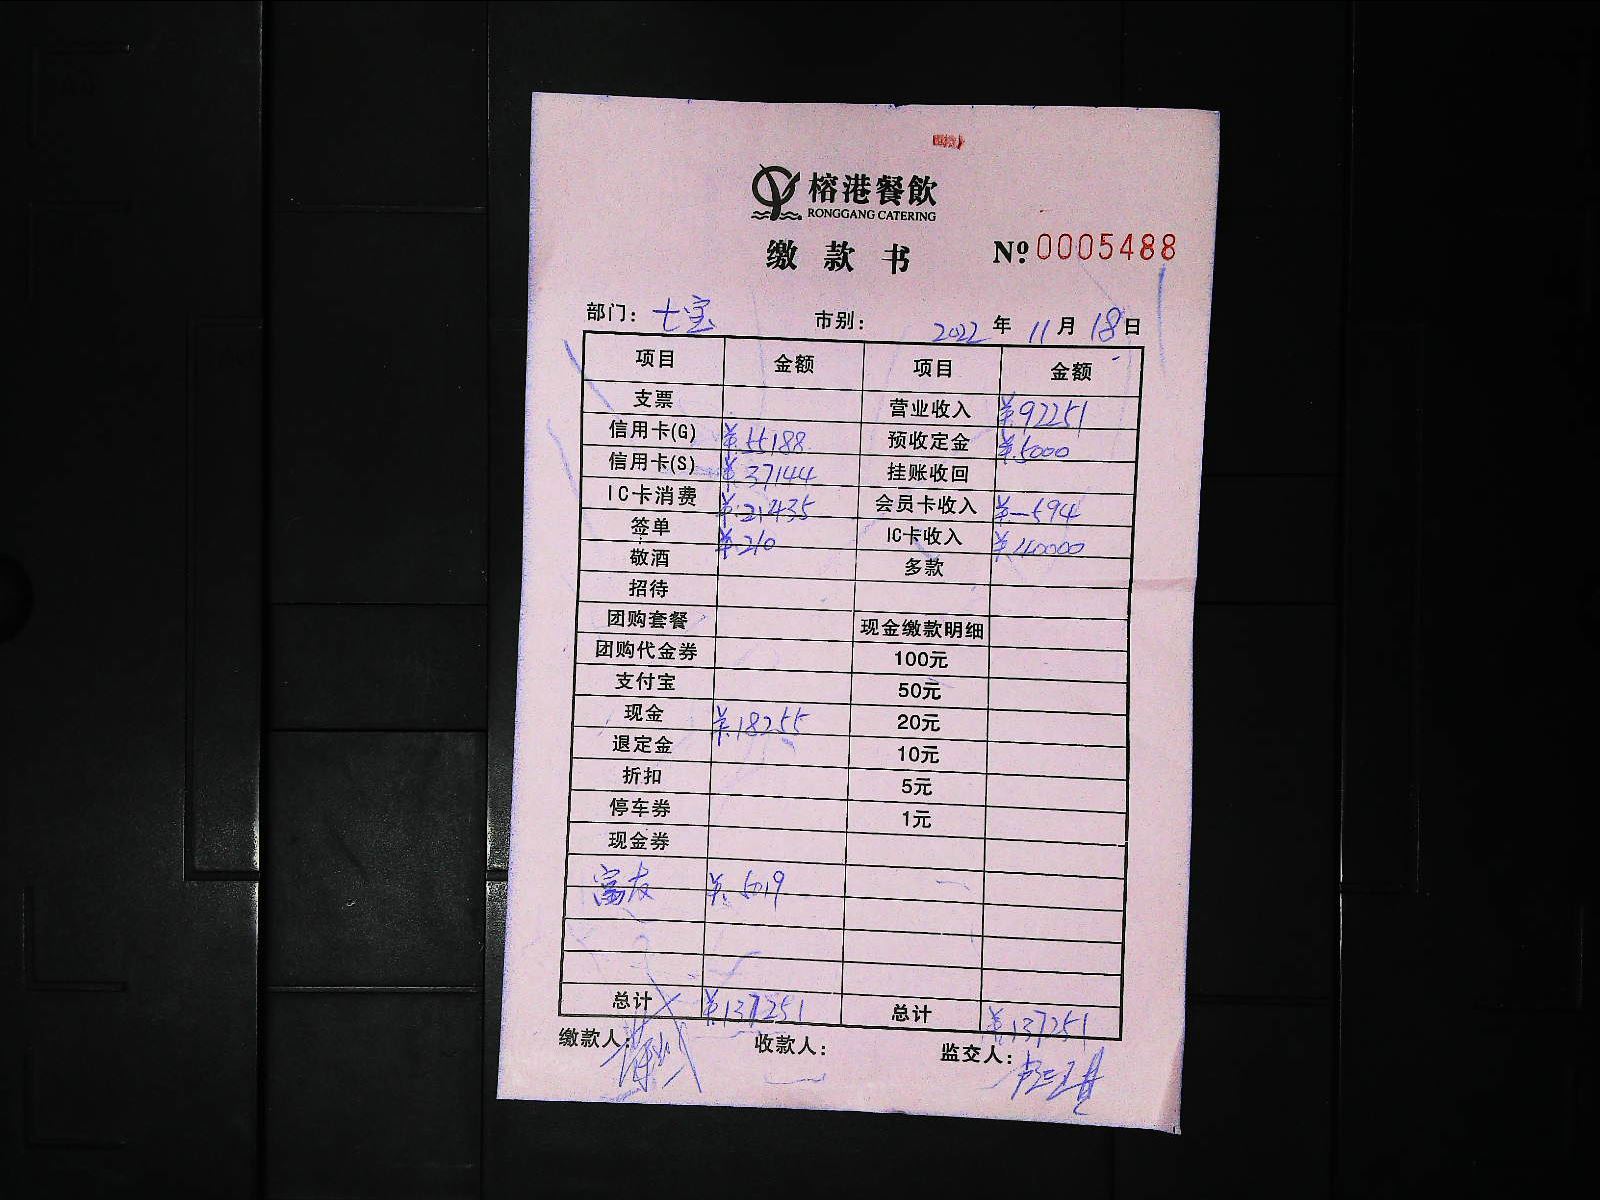 榕港餐飲
RONGGANG CATERING
缴款书 Nº 0005488
部门: 七宝 市别: 2022 年 11 月 18 日
项目 金额 项目 金额
支票 营业收入 ¥92251
信用卡(G) ¥55188 预收定金 ¥5000
信用卡(S) ¥37144 挂账收回
IC卡消费 ¥21435 会员卡收入 ¥-594
签单 ¥210 IC卡收入 ¥40000
敬酒 多款
招待
团购套餐 现金缴款明细
团购代金券 100元
支付宝 50元
现金 ¥18255 20元
退定金 10元
折扣 5元
停车券 1元
现金券
富友 ¥5019
总计 ¥137251 总计 ¥137251
缴款人: 收款人: 监交人: